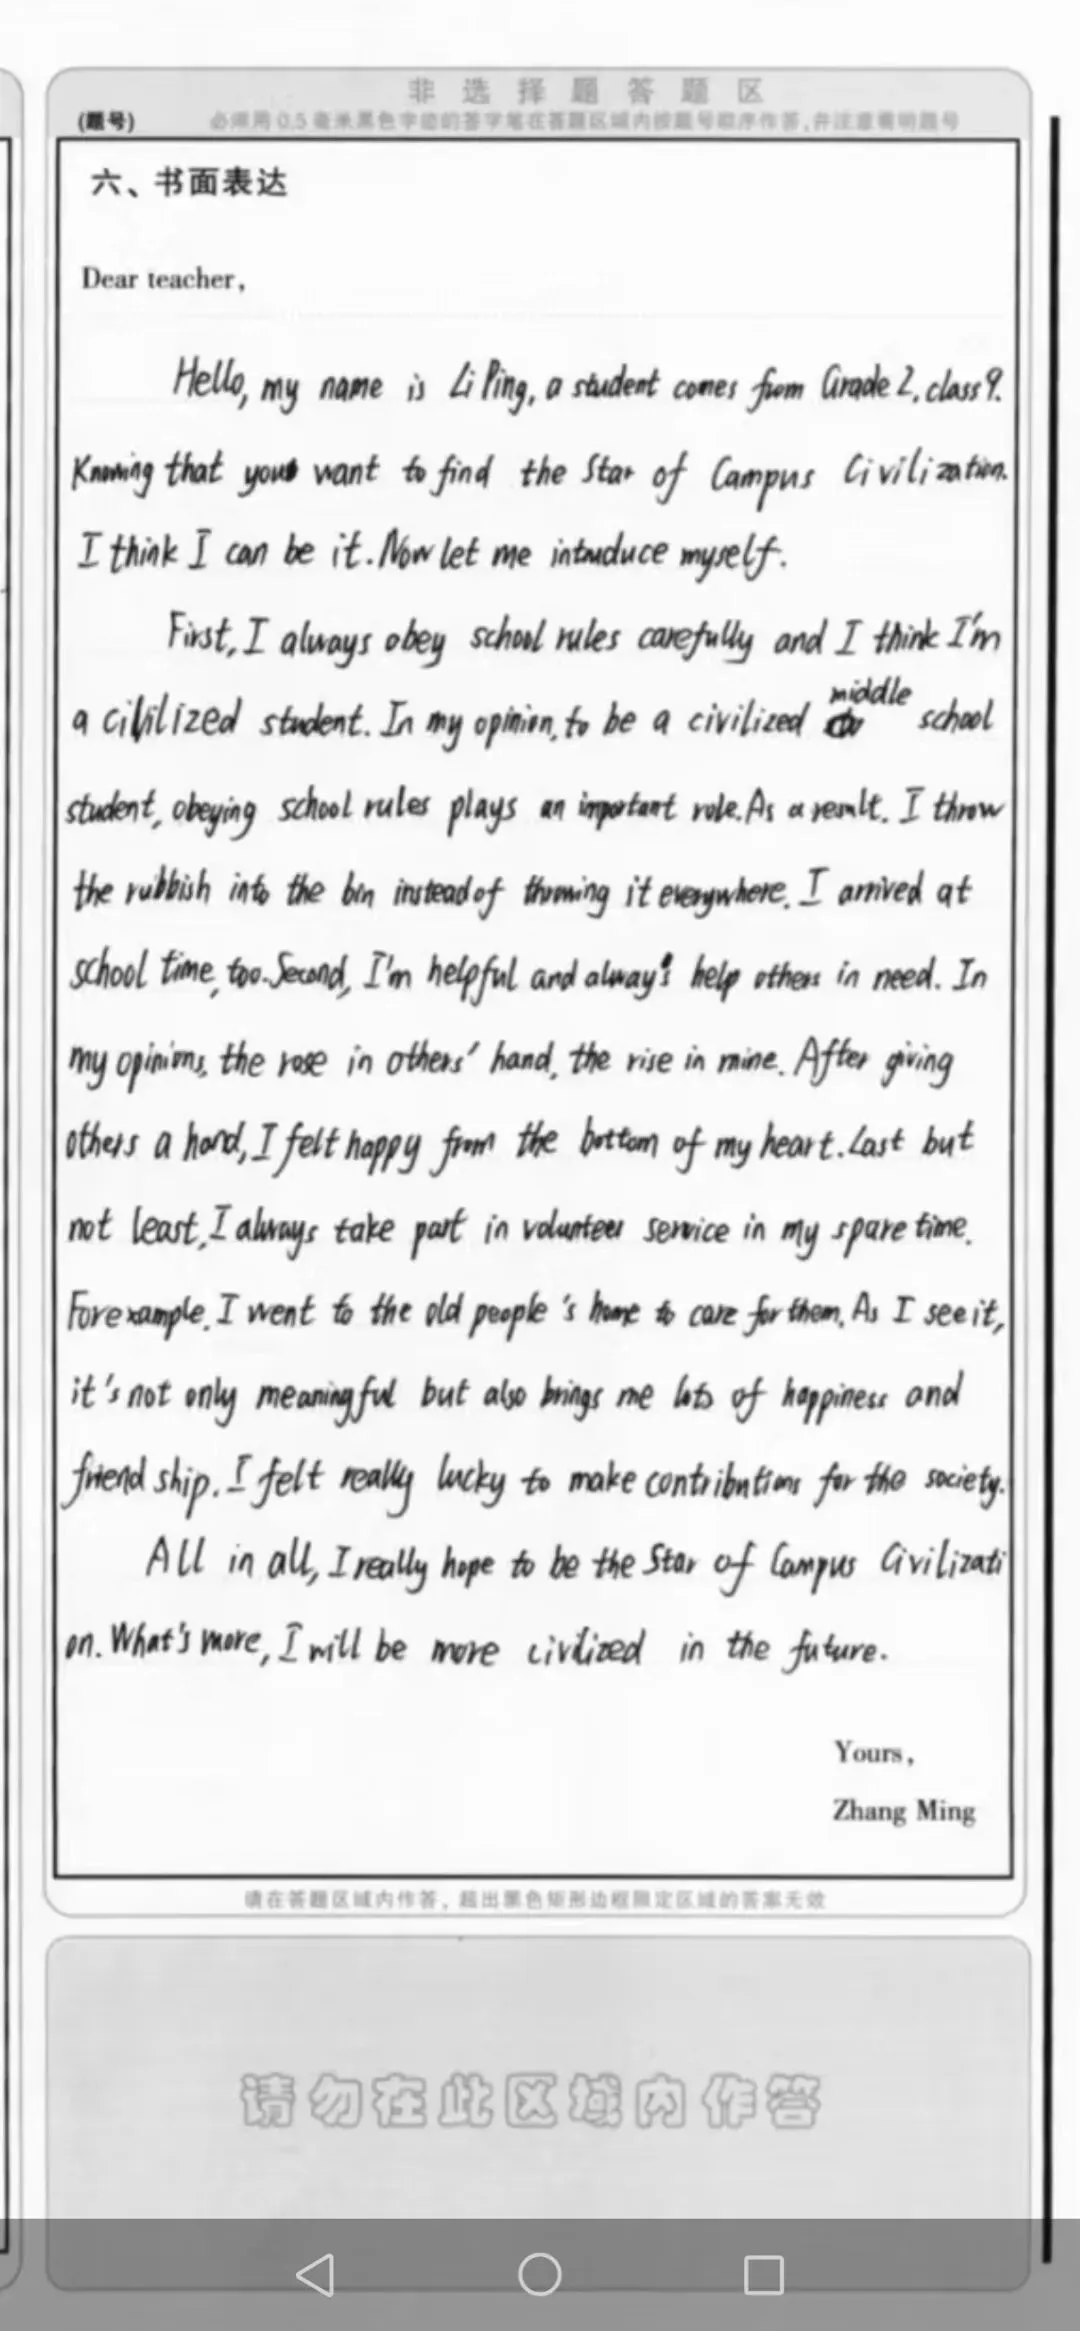 非选择题答题区
(题号)
必须用0.5毫米黑色字迹的签字笔在答题区域内按题号顺序作答,并注意看明题号
六、书面表达
Dear teacher,
Hello, my name is Li Ping, a student comes from Grade 2, class 9.
Knowing that you want to find the Star of Campus Civilization.
I think I can be it. Now let me intruduce myself.
First, I always obey school rules carefully and I think I'm
a civilized student. In my opinion, to be a civilized middle school
student, obeying school rules plays an important role. As a result. I throw
the rubbish into the bin instead of throwing it everywhere. I arrived at
school time, too. Second, I'm helpful and always help others in need. In
my opinions, the rose in others' hand, the rise in mine. After giving
others a hand, I felt happy from the bottom of my heart. Last but
not least, I always take part in volunteer service in my spare time.
For example, I went to the old people's home to care for them. As I see it,
it's not only meaningful but also brings me lots of happiness and
friend ship. I felt really lucky to make contributions for the society.
All in all, I really hope to be the Star of Campus Civilizati
on. What's more, I will be more civilized in the future.
Yours,
Zhang Ming
请在答题区域内作答，超出黑色矩形边框限定区域的答案无效
请勿在此区域内作答